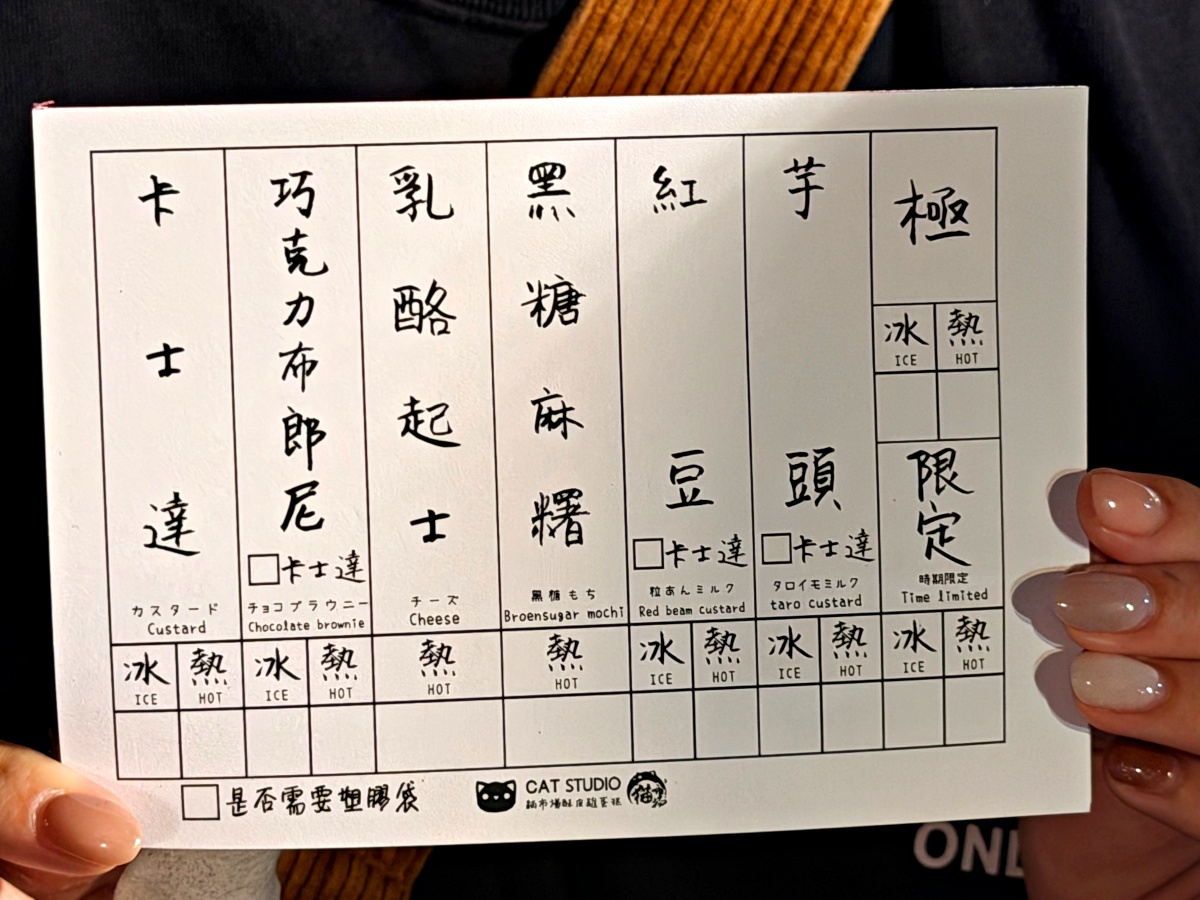 卡士達
カスタード
Custard
冰 熱
ICE HOT
巧克力布郎尼
□卡士達
チョコブラウニー
Chocolate brownie
冰 熱
ICE HOT
乳酪起士
チーズ
Cheese
熱
HOT
黑糖麻糬
黒糖もち
Broensugar mochi
熱
HOT
紅豆
□卡士達
粒あんミルク
Red beam custard
冰 熱
ICE HOT
芋頭
□卡士達
タロイモミルク
taro custard
冰 熱
ICE HOT
極
冰 熱
ICE HOT
限定
時期限定
Time limited
冰 熱
ICE HOT
□是否需要塑膠袋
CAT STUDIO
ONL